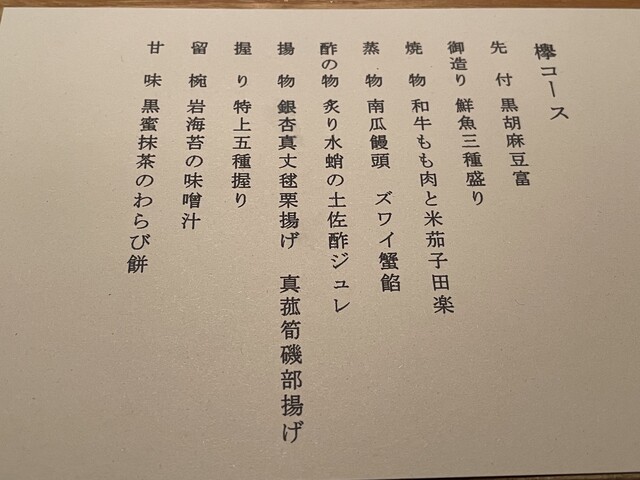 欅コース
先付 黒胡麻豆富
御造り 鮮魚三種盛り
焼物 和牛もも肉と米茄子田楽
蒸物 南瓜饅頭 ズワイ蟹餡
酢の物 炙り水蛸の土佐酢ジュレ
揚物 銀杏真丈毬栗揚げ 真菰筍磯部揚げ
握り 特上五種握り
留椀 岩海苔の味噌汁
甘味 黒蜜抹茶のわらび餅